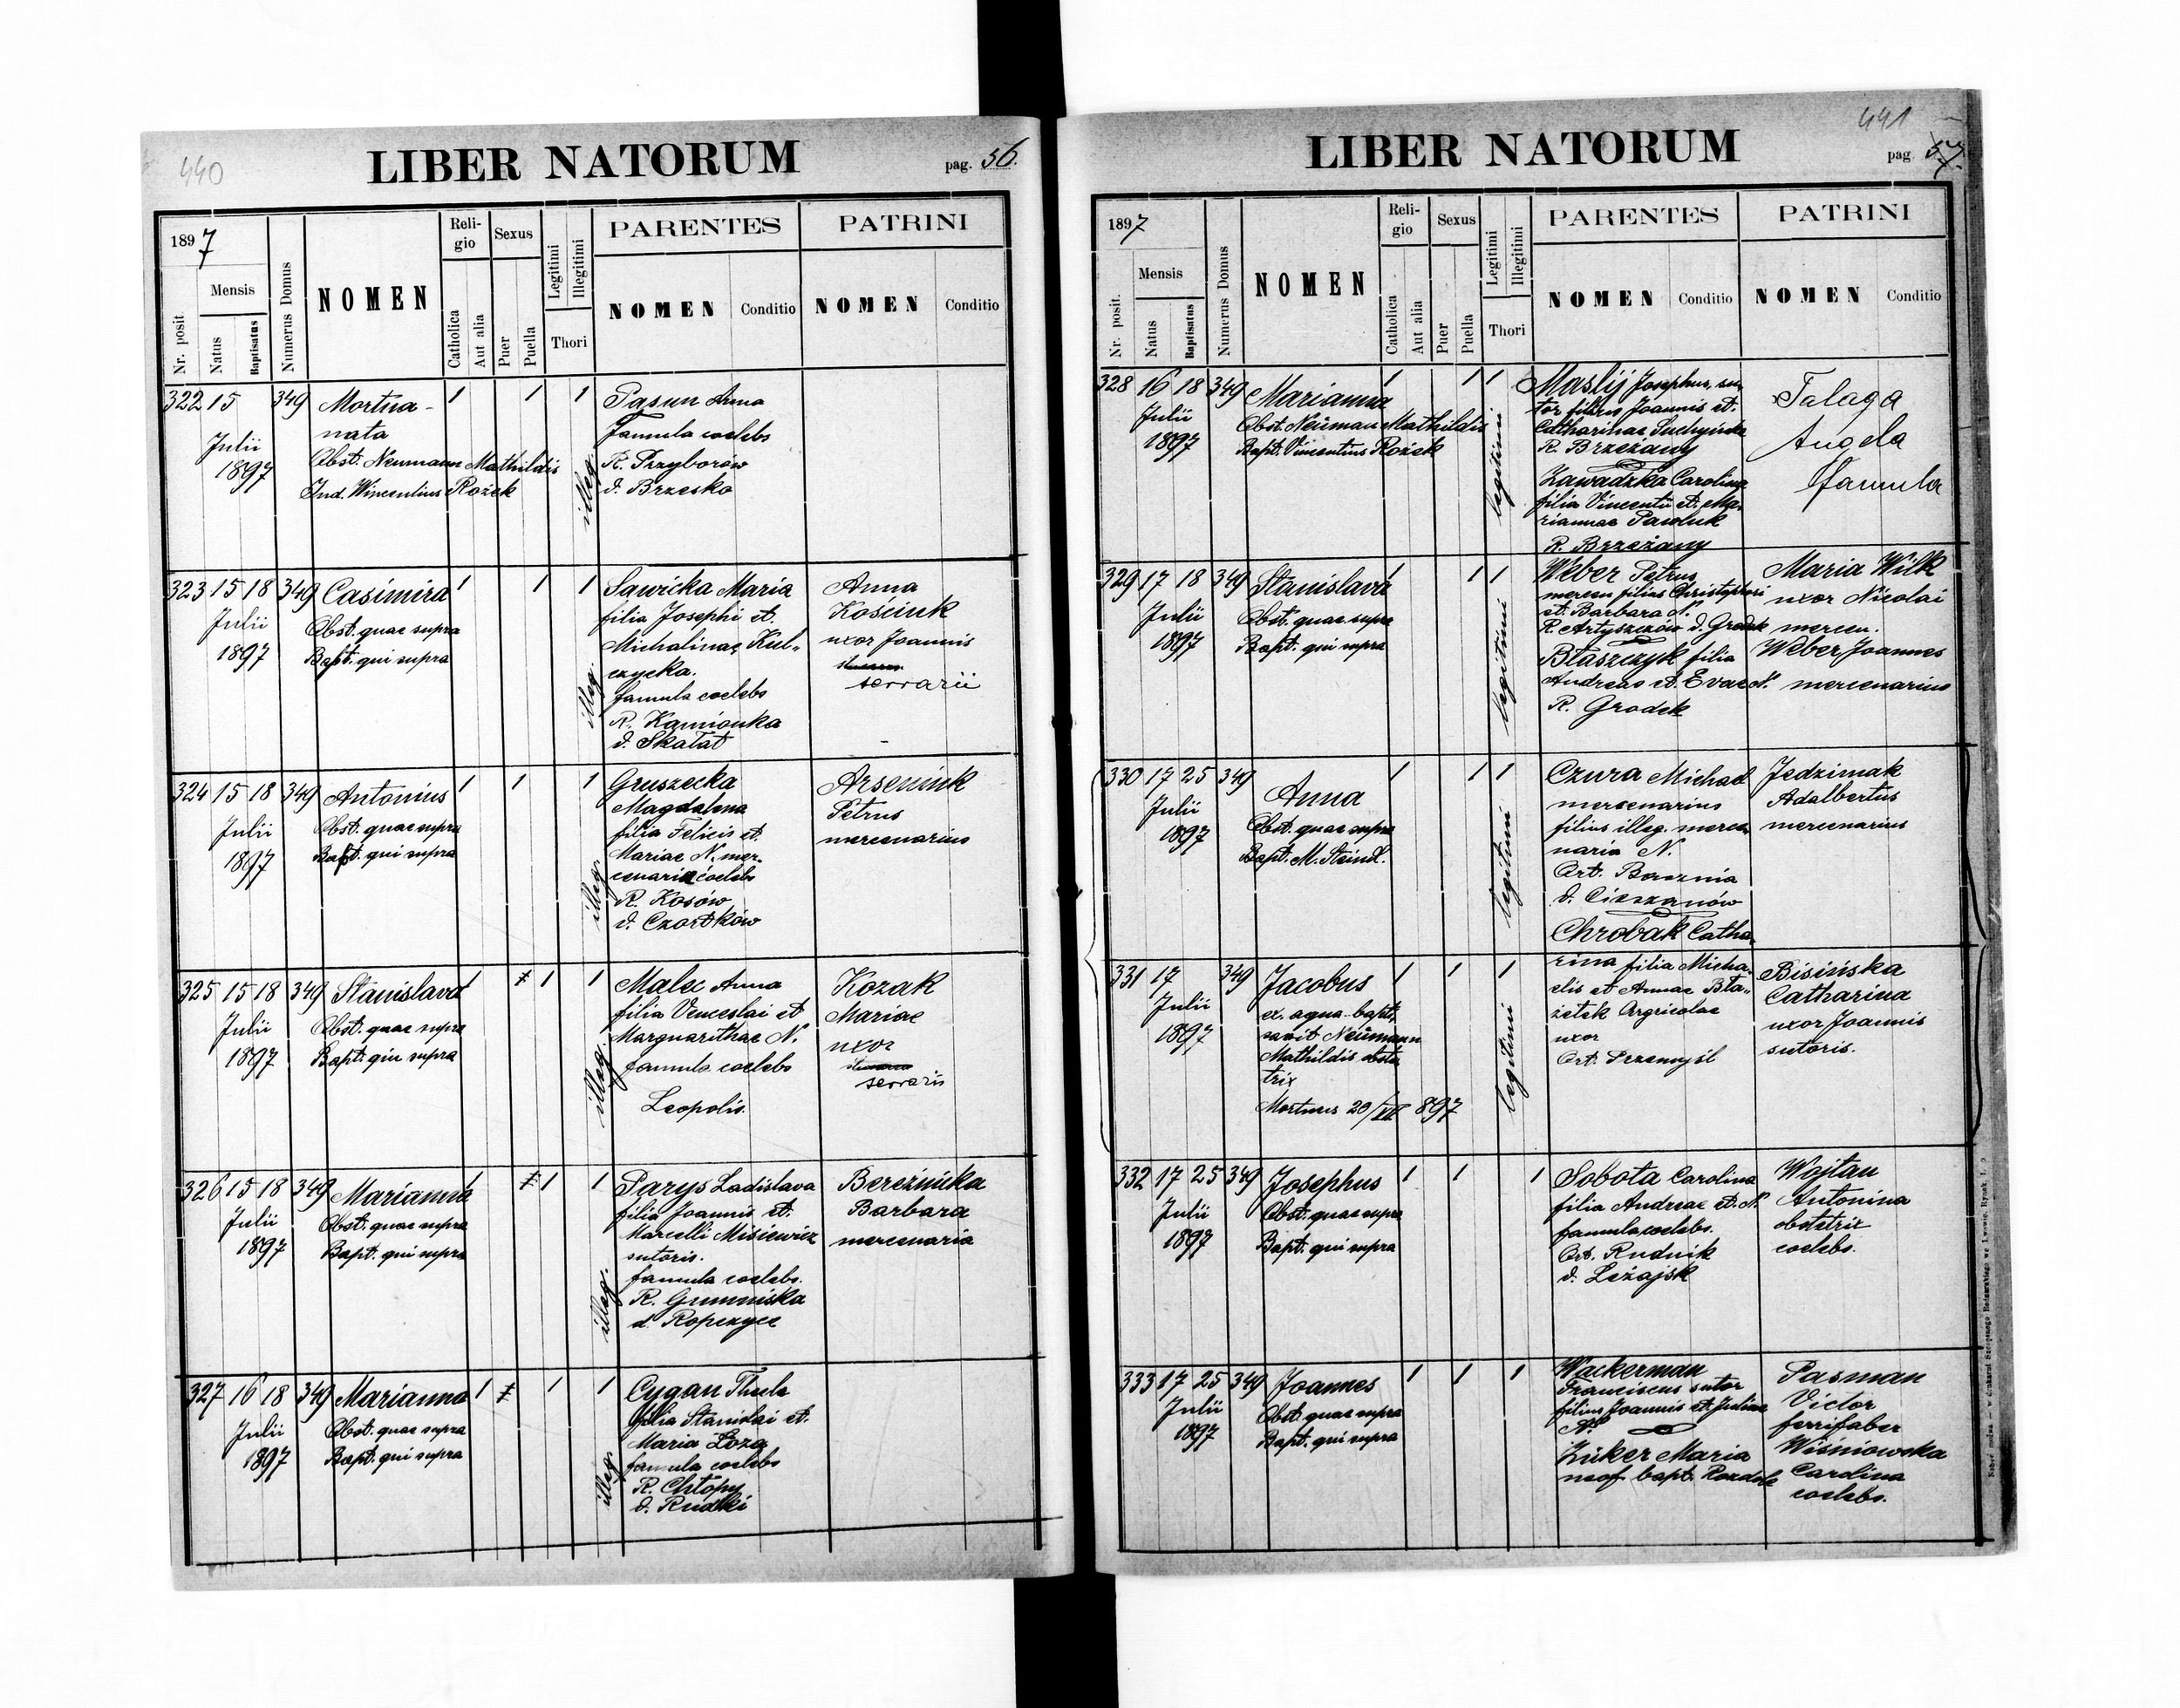 440
LIBER NATORUM
pag. 56.
1897
Mensis
Nr. posit
Natus
Baptisatus
Numerus Domus
NOMEN
Religio
Catholica
Aut alia
Sexus
Puer
Puella
Legitimi
Illegitimi
Thori
PARENTES
NOMEN
Conditio
PATRINI
NOMEN
Conditio
322 15 349 Mortua- 1 1 1 Pasun Anna
nata famula coelebs
Julii
1897 Obst. Neumann Mathildis R. Przyborów
Ind. Wincentius Rożek illeg. d. Brzesko
323 15 18 349 Casimira 1 1 1 Sawicka Maria Anna
Julii Obst. quae supra filia Josephi et. Kościuk
1897 Bapt. qui supra Michalinae Kul- uxor Joannis
czycka. serrarii
illeg. famula coelebs
R. Kamionka
d. Skałat
324 15 18 349 Antonius 1 1 1 Gruszecka Arseniuk
Julii Obst. quae supra Magdalena Petrus
1897 Bapt. qui supra filia Felicis et. mercenarius
Mariae N. mer-
cenaria coelebs
illeg. R. Kosów
d. Czortków
325 15 18 349 Stanislava 1 1 1 Malec Anna Kozak
Julii Obst. quae supra filia Venceslai et Mariae
1897 Bapt. qui supra Marguarithae N. uxor
illeg. famula coelebs serraris
Leopolis.
326 15 18 349 Marianna 1 1 1 Parys Ladislava Bereźnicka
Julii Obst. quae supra filia Joannis et. Barbara
1897 Bapt. qui supra Marcelli Misiewicz mercenaria
sutoris.
illeg. famula coelebs.
R. Gumniska
d. Ropczyce
327 16 18 349 Marianna 1 1 1 Cygan Thecla
Julii Obst. quae supra filia Stanislai et.
1897 Bapt. qui supra Maria Łoza
famula coelebs
illeg. R. Chłopy
d. Rudki
441
LIBER NATORUM
pag. 57.
1897
Mensis
Nr. posit.
Natus
Baptisatus
Numerus Domus
NOMEN
Religio
Catholica
Aut alia
Sexus
Puer
Puella
Legitimi
Illegitimi
Thori
PARENTES
NOMEN
Conditio
PATRINI
NOMEN
Conditio
328 16 18 349 Marianna 1 1 1 Maslij Josephus, su- Talaga
Julii Obst. Neuman Mathildis tor filius Joannis et. Angela
1897 Bapt. Vincentius Rożek Catharinae famula
legitimi R. Brzeżany
Zawadzka Carolina
filia Vincentii et. Ma-
riannae Pawluk
R. Brzeżany
329 17 18 349 Stanislava 1 1 1 Weber Petrus Maria Wilk
Julii Obst. quae supra mercen filius Christophori uxor Nicolai
1897 Bapt. qui supra et. Barbara N. mercen.
R. Artyszczów d. Grodek Weber Joannes
legitimi Błaszczyk filia mercenarius
Andreas et. Evae N.
R. Grodek
330 17 25 349 Anna 1 1 1 Czura Michael Jedzimak
Julii Obst. quae supra mercenarius Adalbertus
1897 Bapt. M. Steind. filius illeg. merce- mercenarius
naria N.
legitimi Ort.
d. Cieszanów
Chrobak Catha-
331 17 349 Jacobus 1 1 1 rina filia Micha- Bisińska
Julii ex. aqua bapti- elis et Annae Bła- Catharina
1897 savit Neumann żetek Argricolae uxor Joannis
Mathildis obste uxor sutoris.
trix Ort. Przemyśl
legitimi Mortuus 20/VII 897
332 17 25 349 Josephus 1 1 1 Sobota Carolina Wojtan
Julii Obst. quae supra filia Andreae et. N. Antonina
1897 Bapt. qui supra famula coelebs. obstetrix
Ort. Rudnik coelebs.
d. Leżajsk
333 17 25 349 Joannes 1 1 1 Wackerman Pasman
Julii Obst. quae supra Franciscus sutor Victor
1897 Bapt. qui supra filius Joannis et. Juliae ferrifaber
N. Wiśniowska
Züker Maria Carolina
neof. bapt. coelebs.